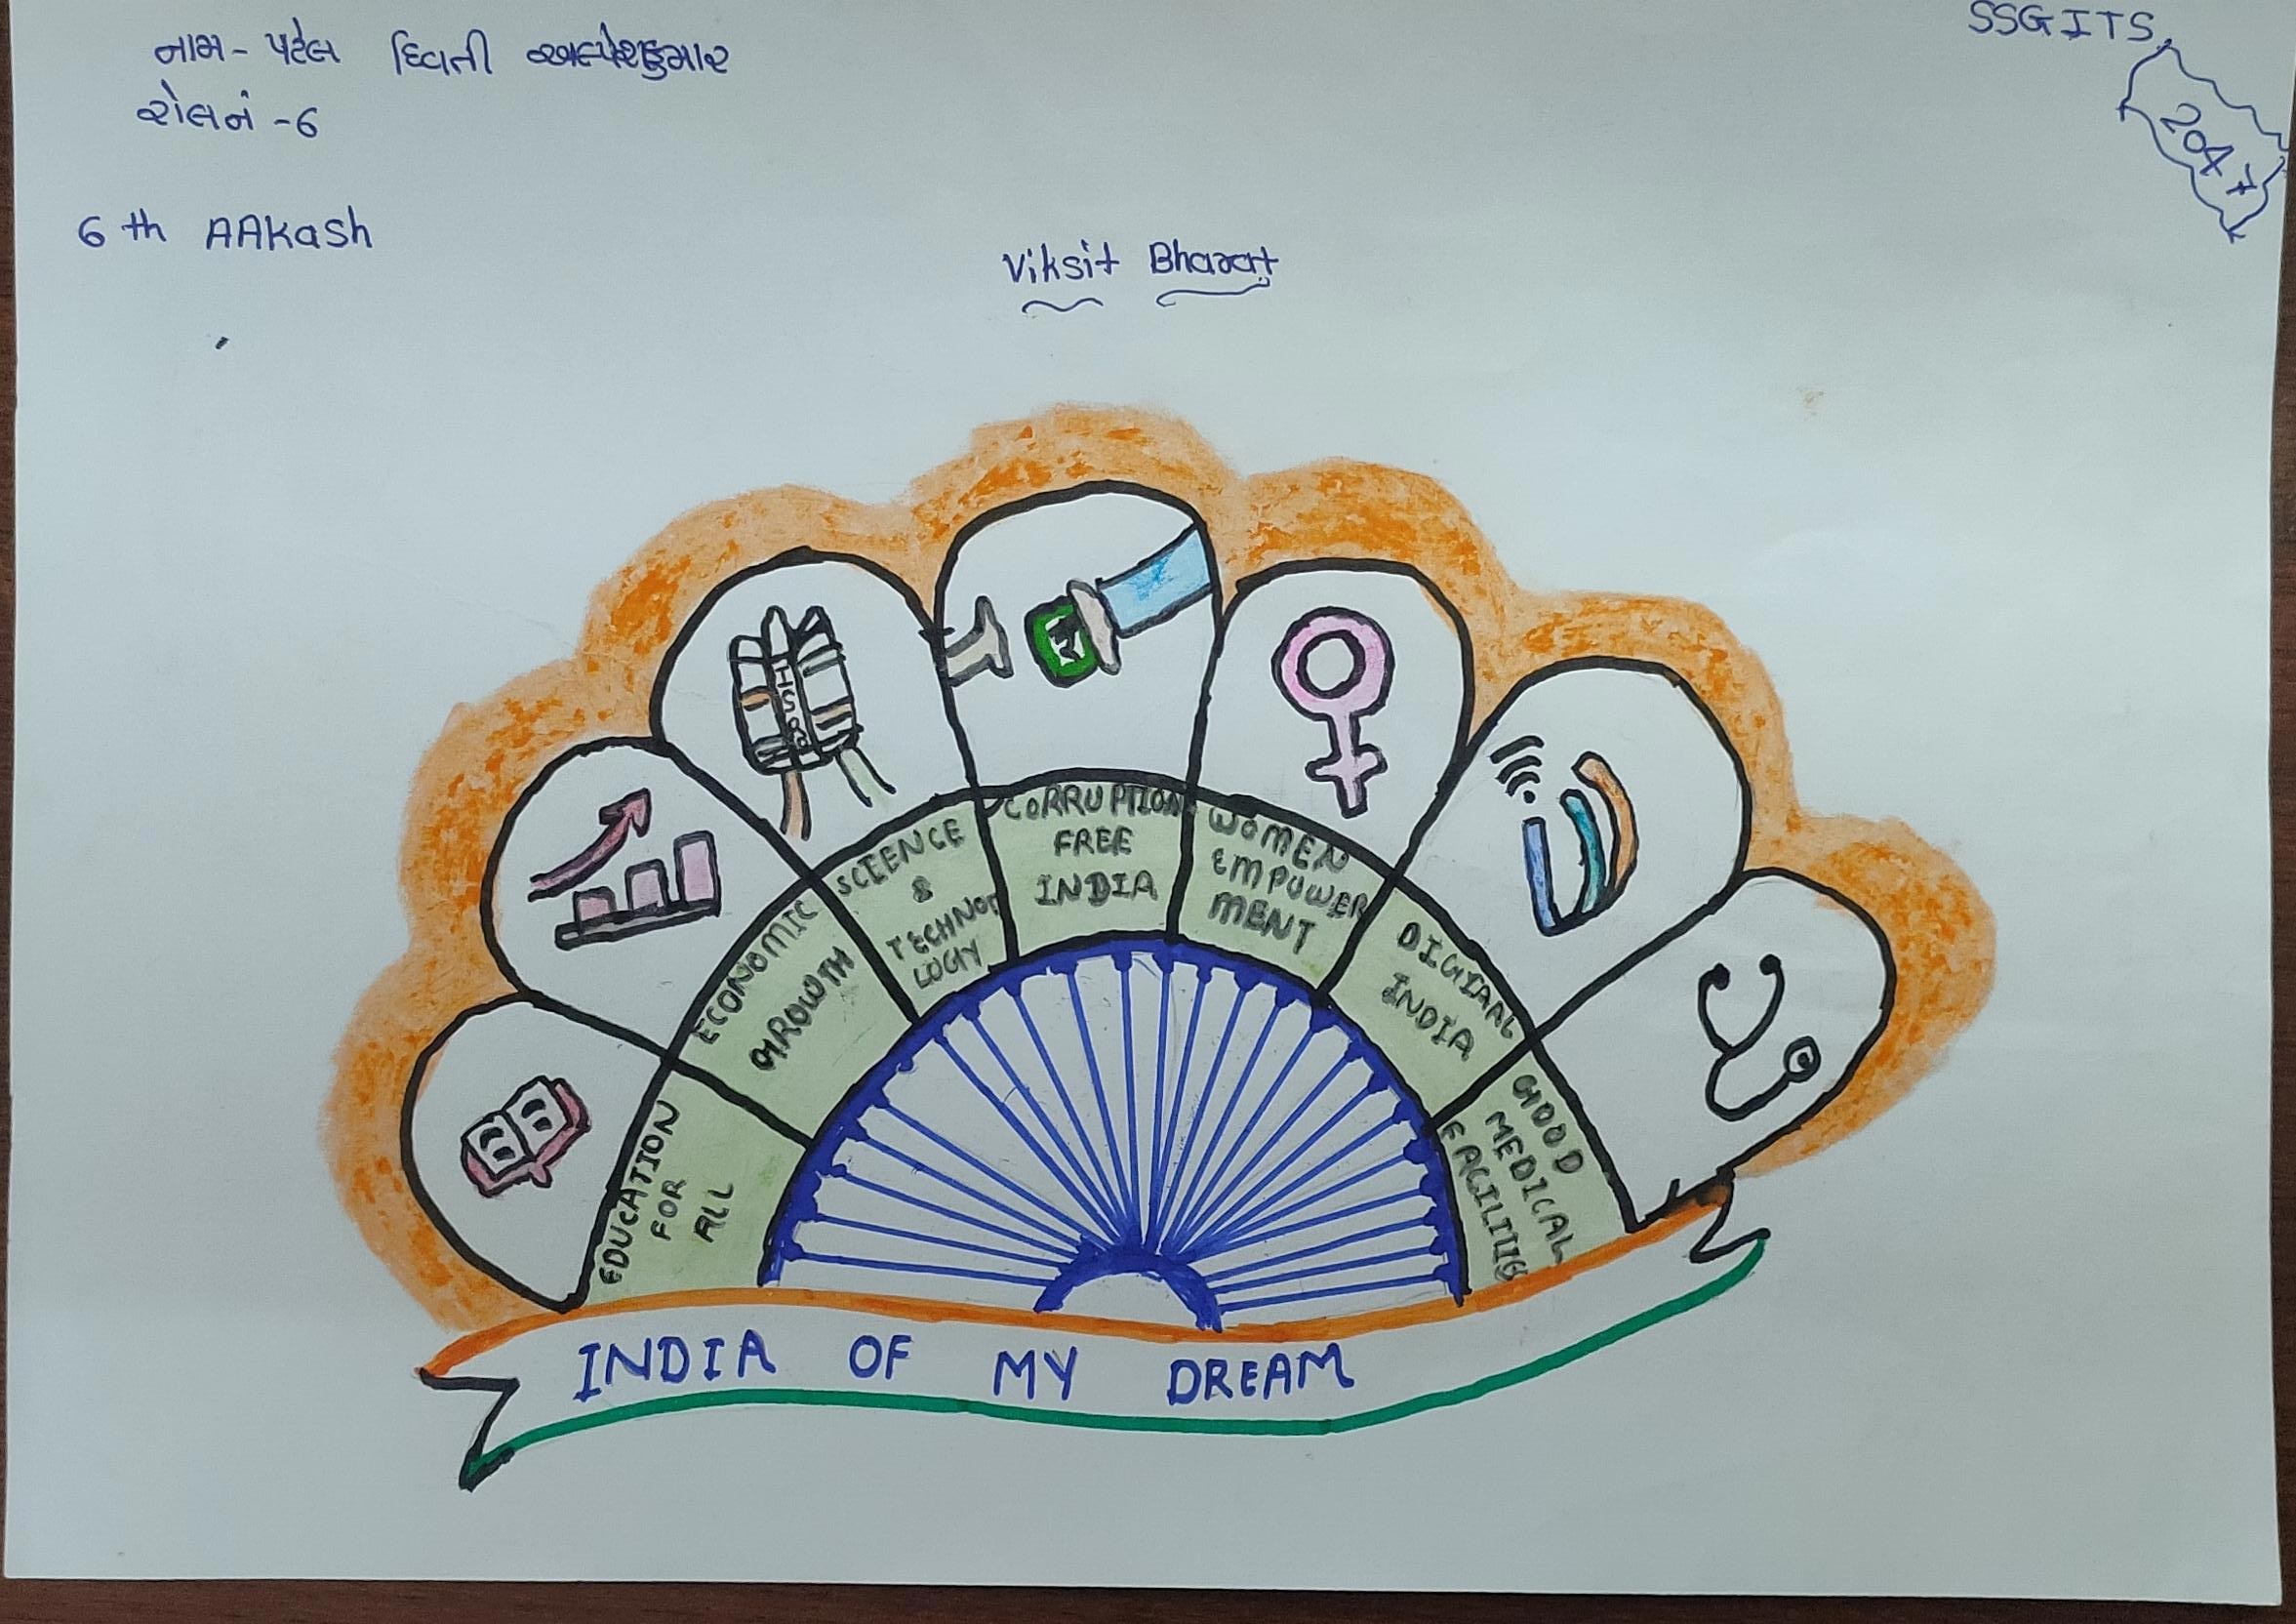 નામ - પટેલ દિવતી અલ્પેશકુમાર
રોલનં - 6
6th AAKash
SSGITS
2047
Viksit Bharat
EDUCATION
FOR
ALL
ECONOMIC
GROWTH
SCIENCE
&
TECHNO
LOGY
CORRUPTION
FREE
INDIA
WOMEN
EMPOWER
MENT
DIGITAAL
INDIA
GOOD
MEDICAL
INDIA OF MY DREAM